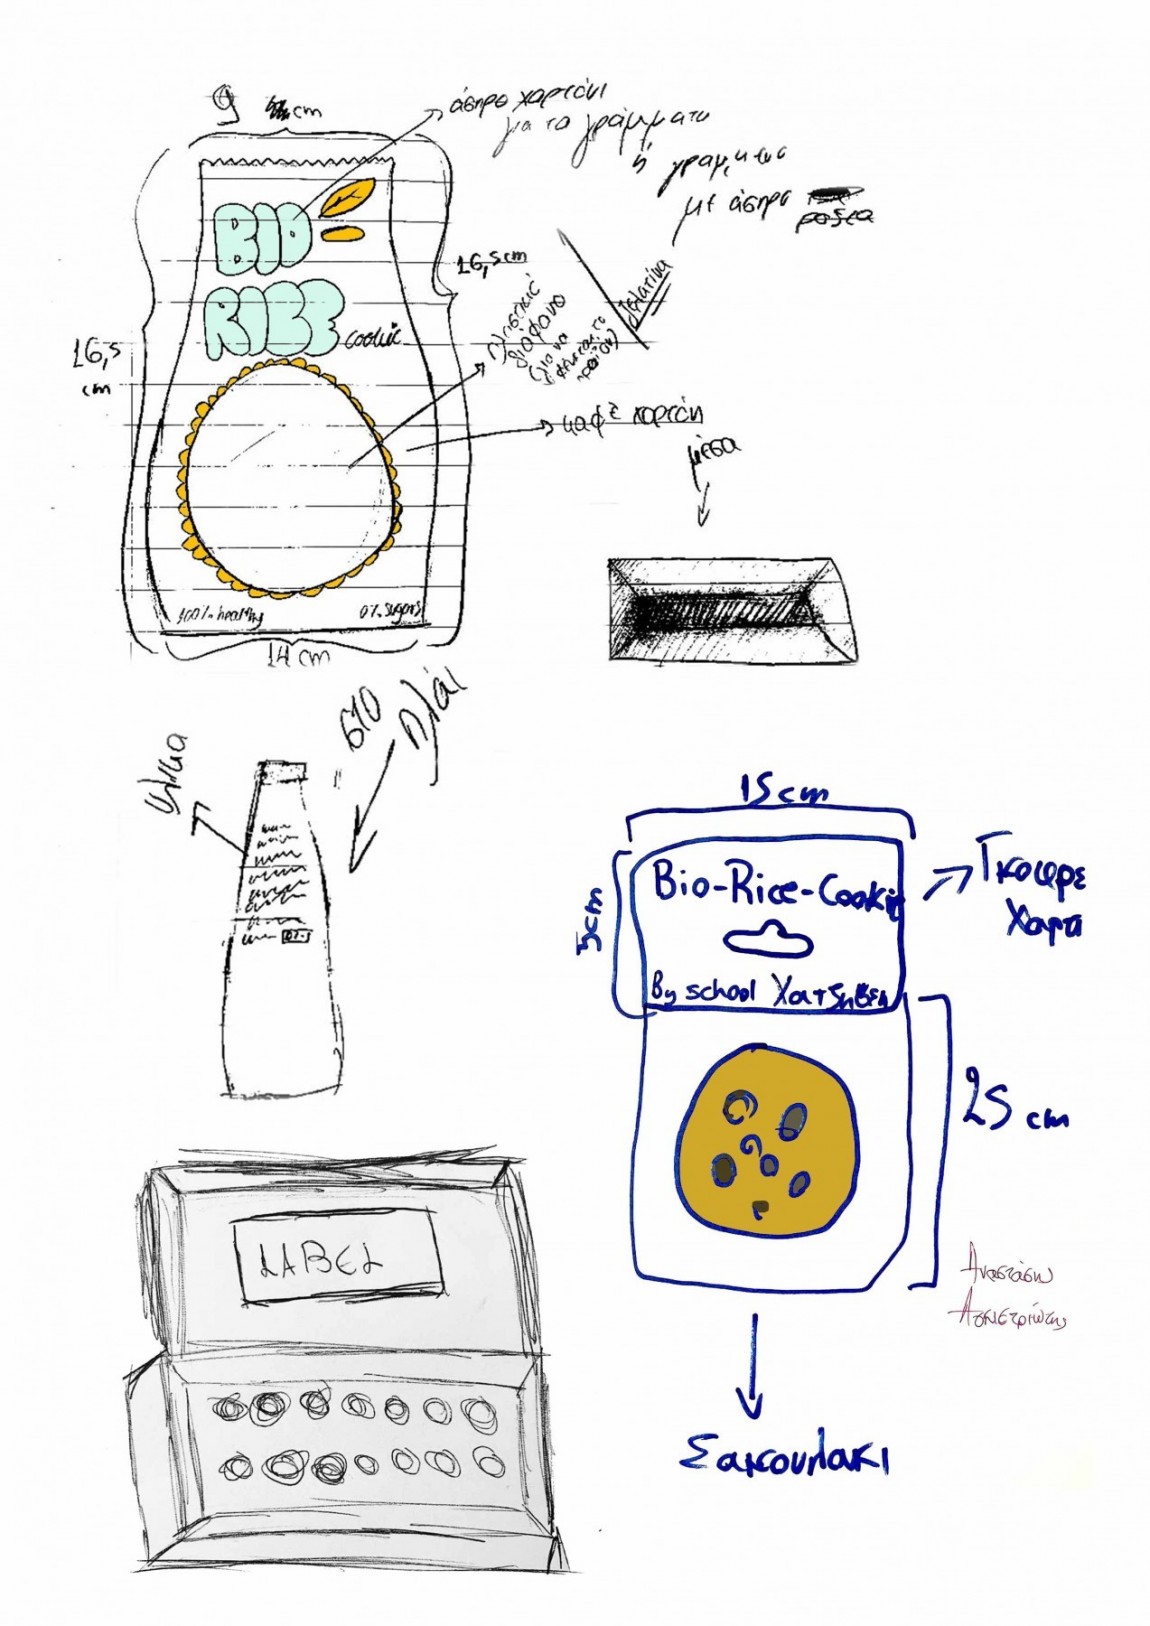 9 cm
άσπρο χαρτόνι
για τα γράμματα
ή γράμματα
με άσπρο
16,5 cm
BIO
RICE
cookie
16,5
cm
πλαστικό
διάφανο
(για να
ζελατίνα
καφέ χαρτόνι
μέσα
100% healthy
0% sugars
14 cm
στο
πλάι
υλικά
15 cm
Bio-Rice-Cookie
5cm
Γκοφρέ
Χαρτί
By school
25 cm
LABEL
Σακουλάκι